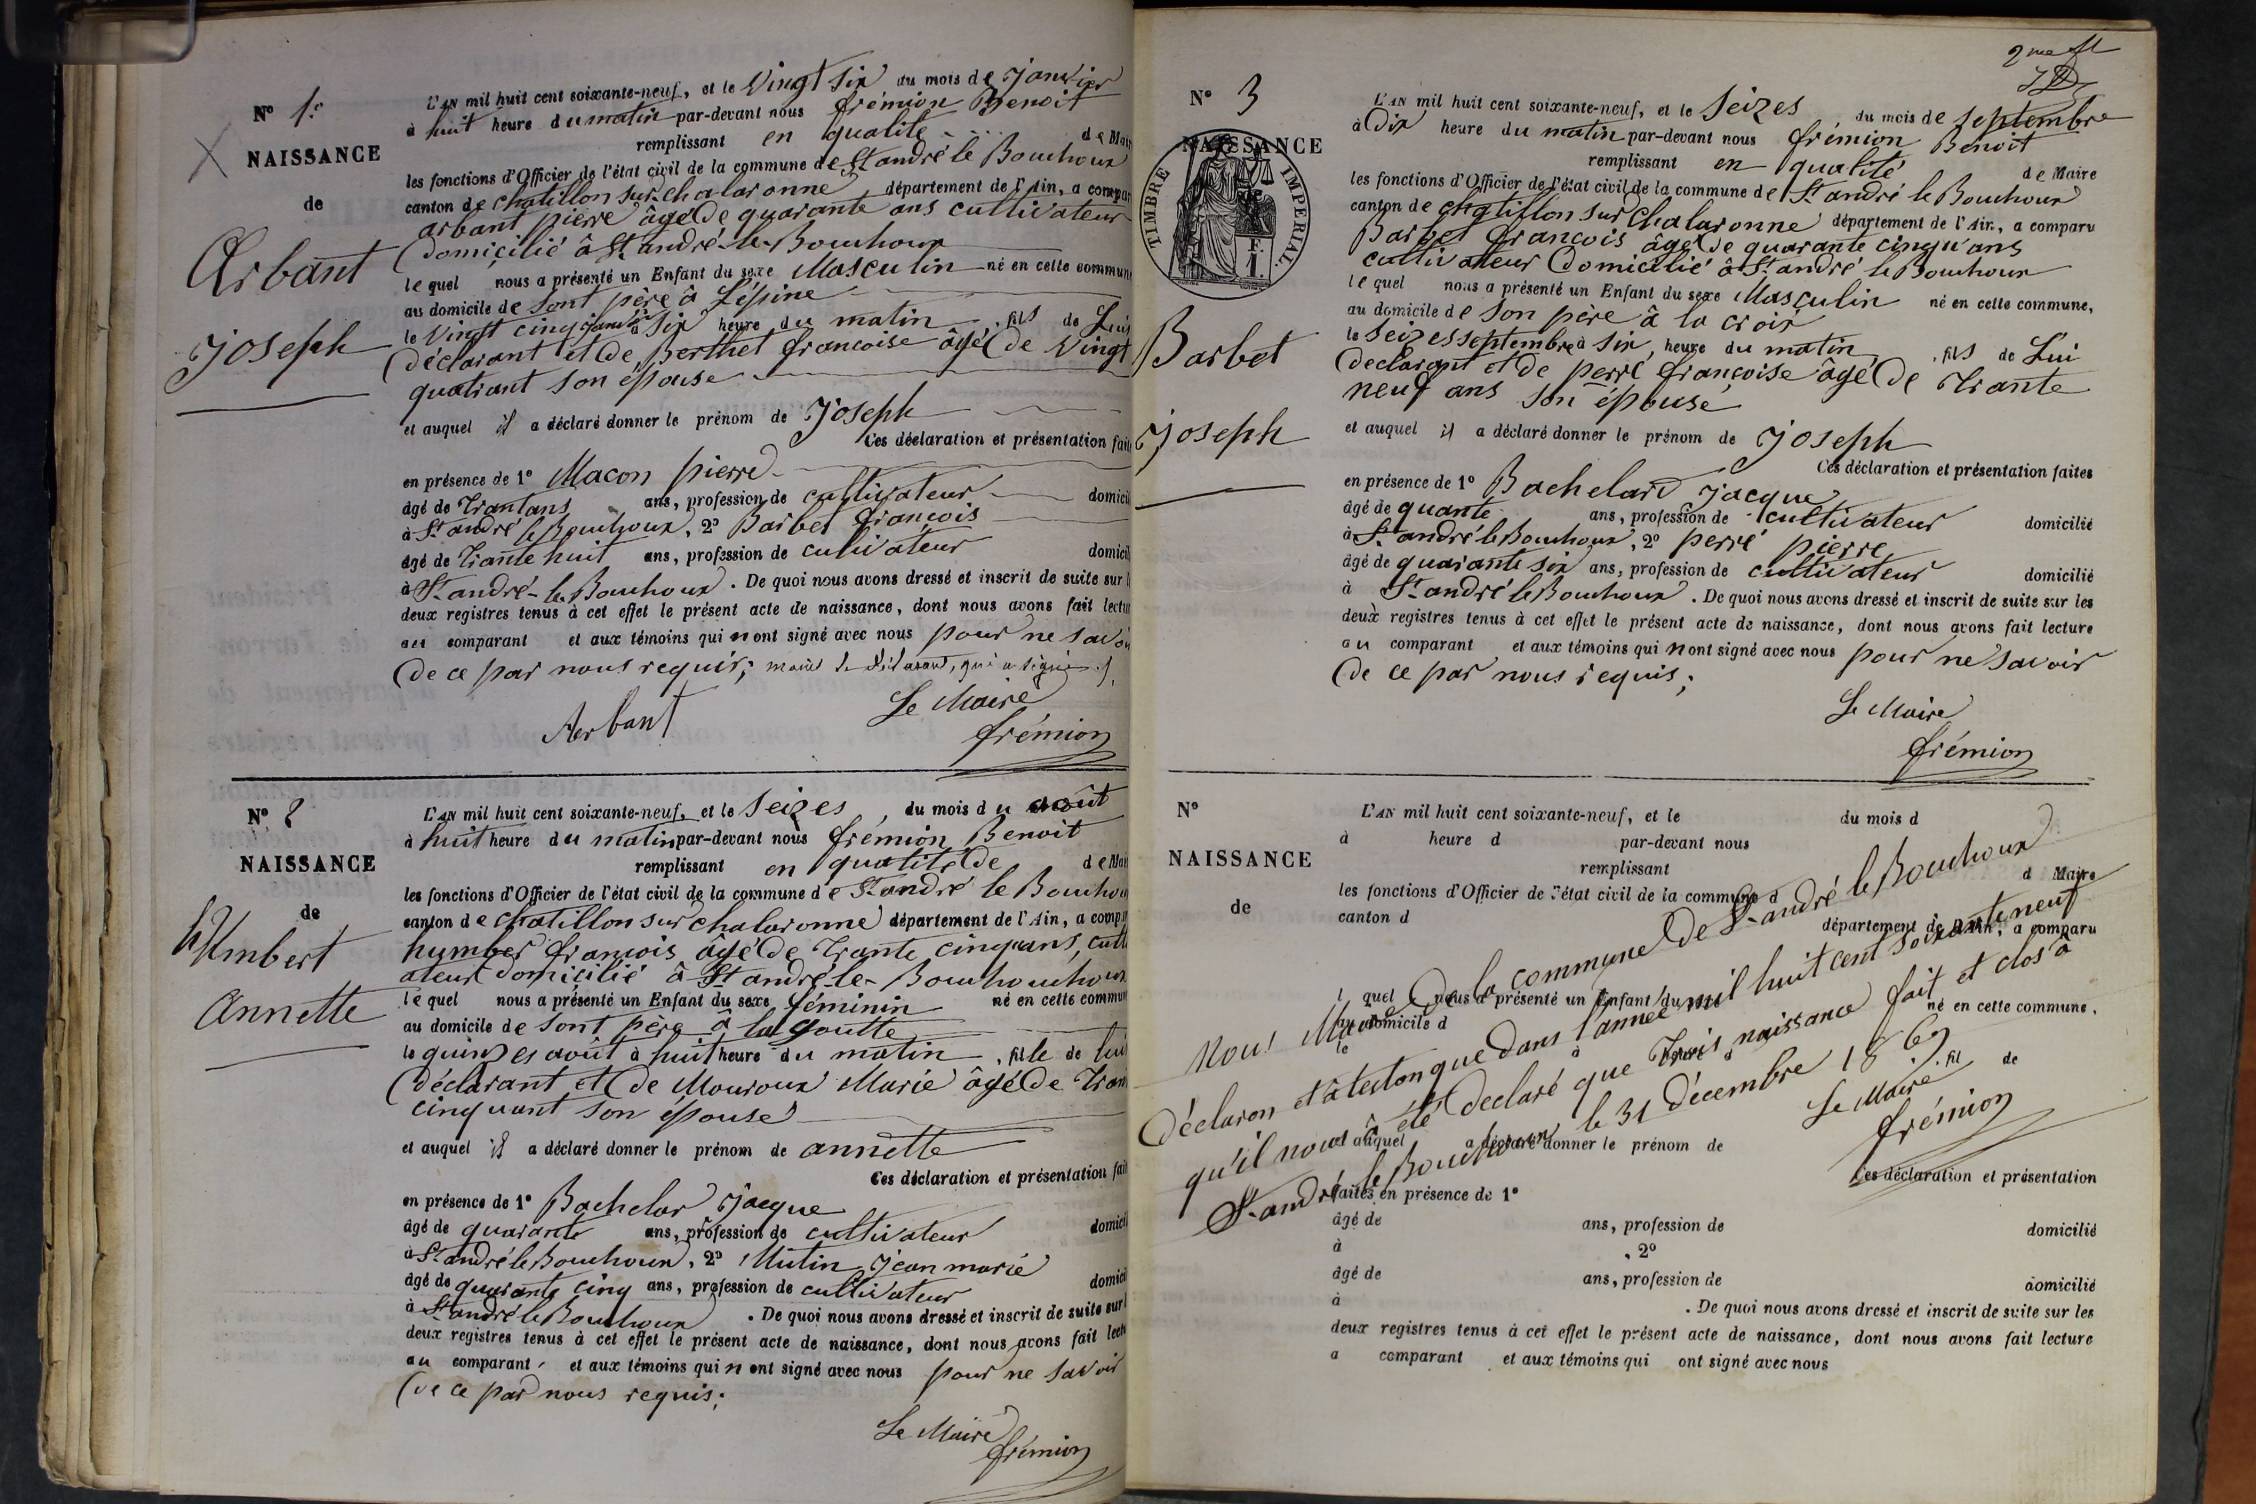 N° 1er
NAISSANCE
de
Arbant
Joseph
L'AN mil huit cent soixante-neuf, et le Vingt six du mois de Janvier
à huit heure du matin par-devant nous frémion Benoit
remplissant en qualité de Mair
les fonctions d'Officier de l'état civil de la commune de St andré le Bouchoux
canton de chatillon sur chalaronne département de l'Ain, a compar
arbant pierre âgé de quarante ans cultivateur
domicilié â St andré-le-Bouchoux
lequel nous a présenté un Enfant du sexe Masculin né en cette commune
au domicile de sont père â Lépine
le Vingt cinq janvier à six heure du matin , fils de Lui
déclarant et de Berthet francoise âgé de Vingt
quatrant son épouse
et auquel il a déclaré donner le prénom de Joseph
Ces déclaration et présentation fait
en présence de 1° Macon pierre
âgé de trantans ans, profession de cultivateur domicil
à St andré le Bouchoux, 2° Barbet françois
âgé de trante huit ans, profession de cultivateur domicil
à St andré-le Bouchoux. De quoi nous avons dressé et inscrit de suite sur l
deux registres tenus à cet effet le présent acte de naissance, dont nous avons fait lectur
au comparant et aux témoins qui n ont signé avec nous pour ne savoi
de ce par nous requir; moins le déclarant, qui a signé
Arbant
Le Maire
frémion
N° 2
NAISSANCE
de
hUmbert
Annette
L'AN mil huit cent soixante-neuf, et le Seizes, du mois du août
à huit heure du matin par-devant nous frémion Benoit
remplissant en qualité de de Mai
les fonctions d'Officier de l'état civil de la commune de St andré le Bouchou
canton de chatillon sur chalaronne département de l'Ain, a comp
humber françois âgé de trante cinquans, cult
ateur domicilié â St andré-le-Bouchouchoux
lequel nous a présenté un Enfant du sexe féminin né en cette commun
au domicile de sont père â la Goutte
le quinzes août à huit heure du matin , fille de lui
déclarant et de Mouroux Marie âgé de tran
cinquant son épouse
et auquel il a déclaré donner le prénom de annette
Ces déclaration et présentation fait
en présence de 1° Bachelar Jacque
âgé de quarante ans, profession de cultivateur domicil
à St andré le Bouchoux, 2° Mutin Jean marie
âgé de quarante cinq ans, profession de cultivateur domicil
à St andré le Bouchoux. De quoi nous avons dressé et inscrit de suite sur l
deux registres tenus à cet effet le présent acte de naissance, dont nous avons fait lectu
au comparant et aux témoins qui n ont signé avec nous pour ne savoir
de ce par nous requis;
Le Maire
frémion
2me
N° 3
NAISSANCE
TIMBRE IMPERIAL.
Barbet
Joseph
L'AN mil huit cent soixante-neuf, et le Seizes, du mois de septembre
à Dix heure du matin par-devant nous frémion Benoit
remplissant en qualité de Maire
les fonctions d'Officier de l'état civil de la commune de St andré le Bouchoux
canton de chatillon sur chalaronne département de l'Ain, a comparu
Barbet françois âgé de quarante cinqu'ans
cultivateur domicilié â St andré le Bouchoux
lequel nous a présenté un Enfant du sexe Masculin né en cette commune,
au domicile de son père â la croix
le seizes septembre à six heure du matin , fils de Lui
déclarant et de perré françoise âgé de trante
neuf ans son épouse
et auquel il a déclaré donner le prénom de Joseph
Ces déclaration et présentation faites
en présence de 1° Bachelard Jacque
âgé de quante ans, profession de cultivateur domicilié
à St andré le Bouchoux, 2° perré pierre
âgé de quarante six ans, profession de cultivateur domicilié
à St andré le Bouchoux. De quoi nous avons dressé et inscrit de suite sur les
deux registres tenus à cet effet le présent acte de naissance, dont nous avons fait lecture
au comparant et aux témoins qui n ont signé avec nous pour ne savoir
de ce par nous requis;
Le Maire
frémion
N°
NAISSANCE
de
L'AN mil huit cent soixante-neuf, et le du mois d
à heure d par-devant nous
remplissant d Maire
les fonctions d'Officier de l'état civil de la commune d
canton d département de l'Ain, a comparu
l quel nous a présenté un Enfant du sexe né en cette commune,
au domicile d
le à heure d , fil de
et auquel a déclaré donner le prénom de
Ces déclaration et présentation
faites en présence de 1°
âgé de ans, profession de domicilié
à , 2°
âgé de ans, profession de domicilié
à . De quoi nous avons dressé et inscrit de suite sur les
deux registres tenus à cet effet le présent acte de naissance, dont nous avons fait lecture
a comparant et aux témoins qui ont signé avec nous
Nous Maire de la commune de St andré le Bouchoux
Déclaron et atteston que dans l'année mil huit cent soixante neuf
qu'il nous â été declaré que trois naissance fait et clos â
St andré le Bouchoux le 31 décembre 1869
Le Maire
frémion